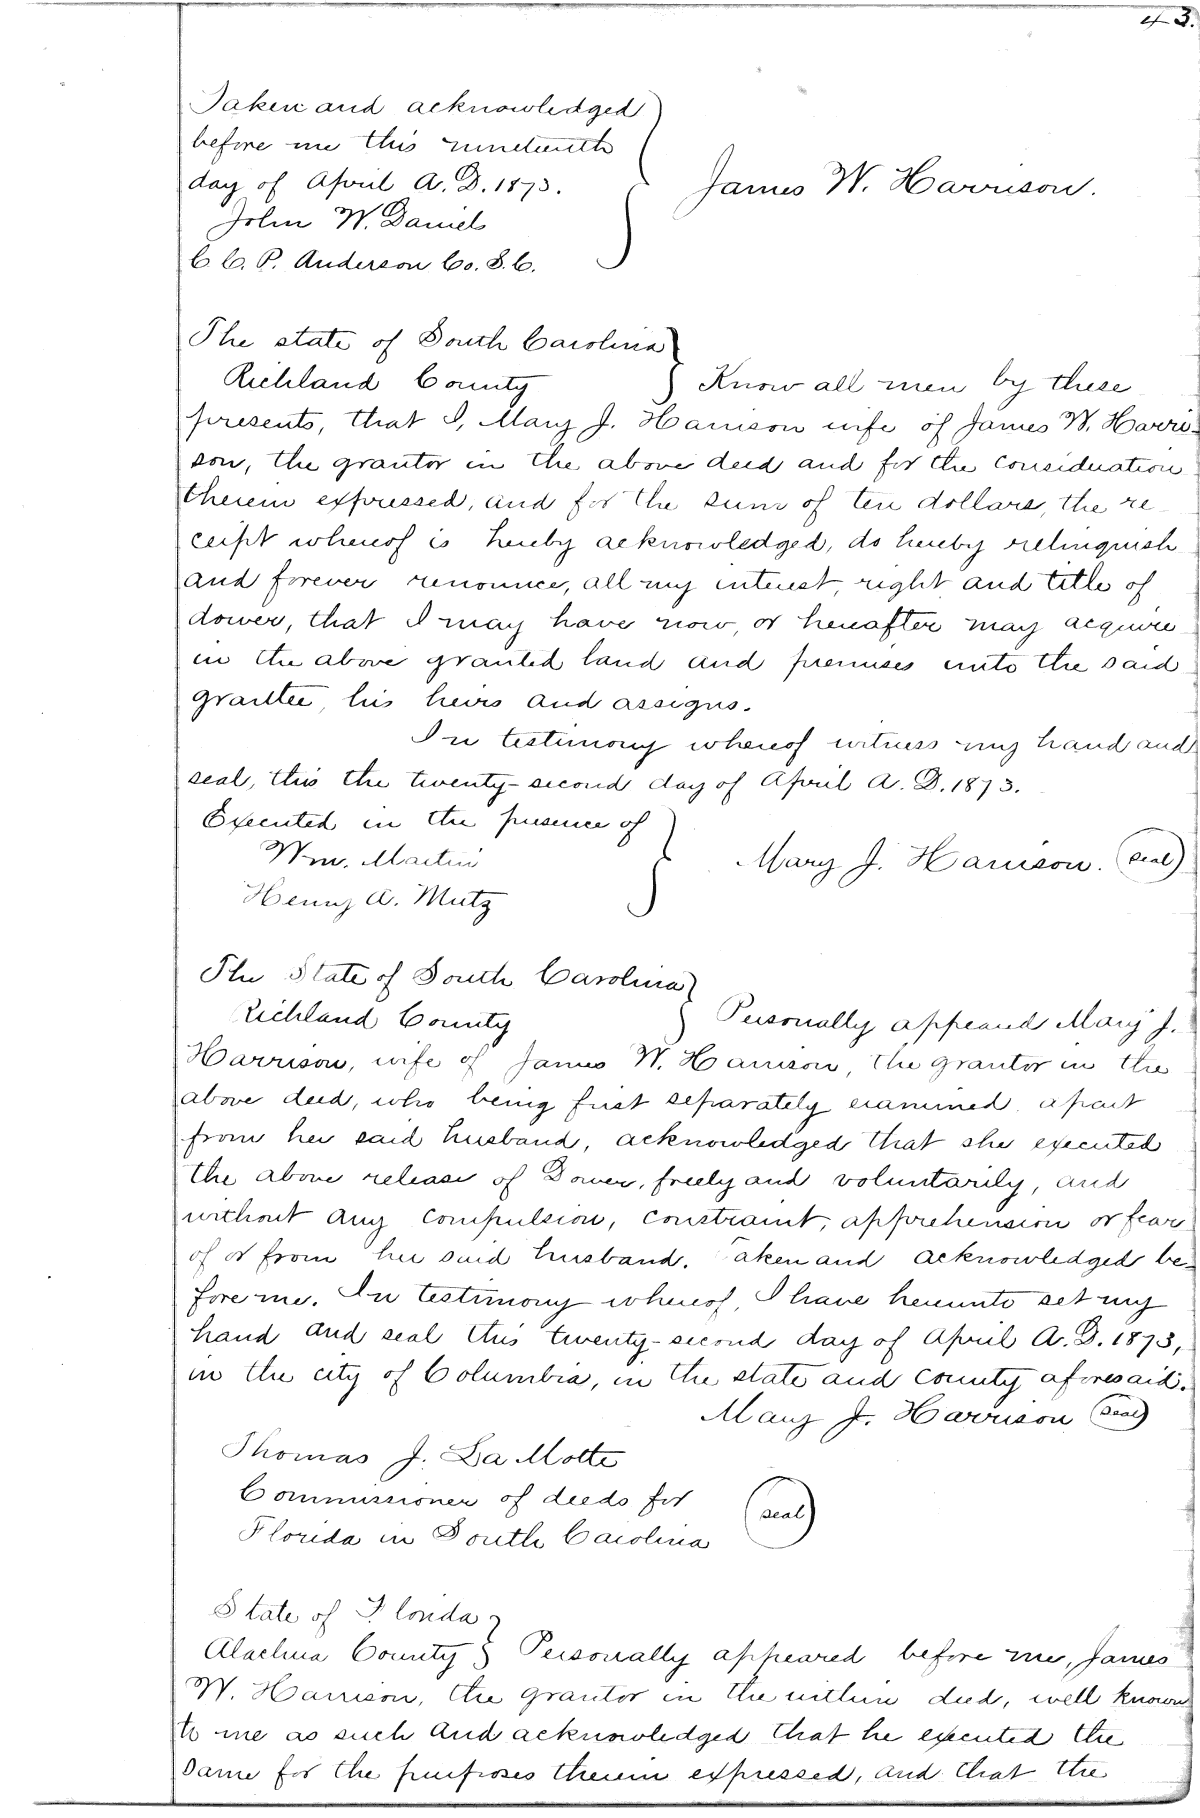 43.
Taken and acknowledged
before me this nineteenth
day of April A.D. 1873.
James W. Harrison.
John W. Daniels
C. C. P. Anderson Co. S. C.
The state of South Carolina
Richland County Know all men by these
presents, that I, Mary J. Harrison wife of James W. Harri-
son, the grantor in the above deed and for the consideration
therein expressed, and for the sum of ten dollars, the re-
ceipt whereof is hereby acknowledged, do hereby relinquish
and forever renounce, all my interest, right and title of
dower, that I may have now, or hereafter may acquire
in the above granted land and premises unto the said
grantee, his heirs and assigns.
In testimony whereof witness my hand and
seal, this the twenty-second day of April A.D. 1873.
Executed in the presence of
Wm. Martin
Mary J. Harrison. (seal)
Henry A. Mutz
The State of South Carolina
Richland County Personally appeared Mary J.
Harrison, wife of James W. Harrison, the grantor in the
above deed, who being first separately examined apart
from her said husband, acknowledged that she executed
the above release of Dower, freely and voluntarily, and
without any compulsion, constraint, apprehension or fear
of or from her said husband. Taken and acknowledged be-
fore me. In testimony whereof, I have hereunto set my
hand and seal this twenty-second day of April A.D. 1873,
in the city of Columbia, in the state and county aforesaid.
Mary J. Harrison (seal)
Thomas J. La Motte
Commissioner of deeds for
(seal)
Florida in South Carolina
State of Florida
Alachua County Personally appeared before me, James
W. Harrison, the grantor in the within deed, well known
to me as such and acknowledged that he executed the
same for the purposes therein expressed, and that the